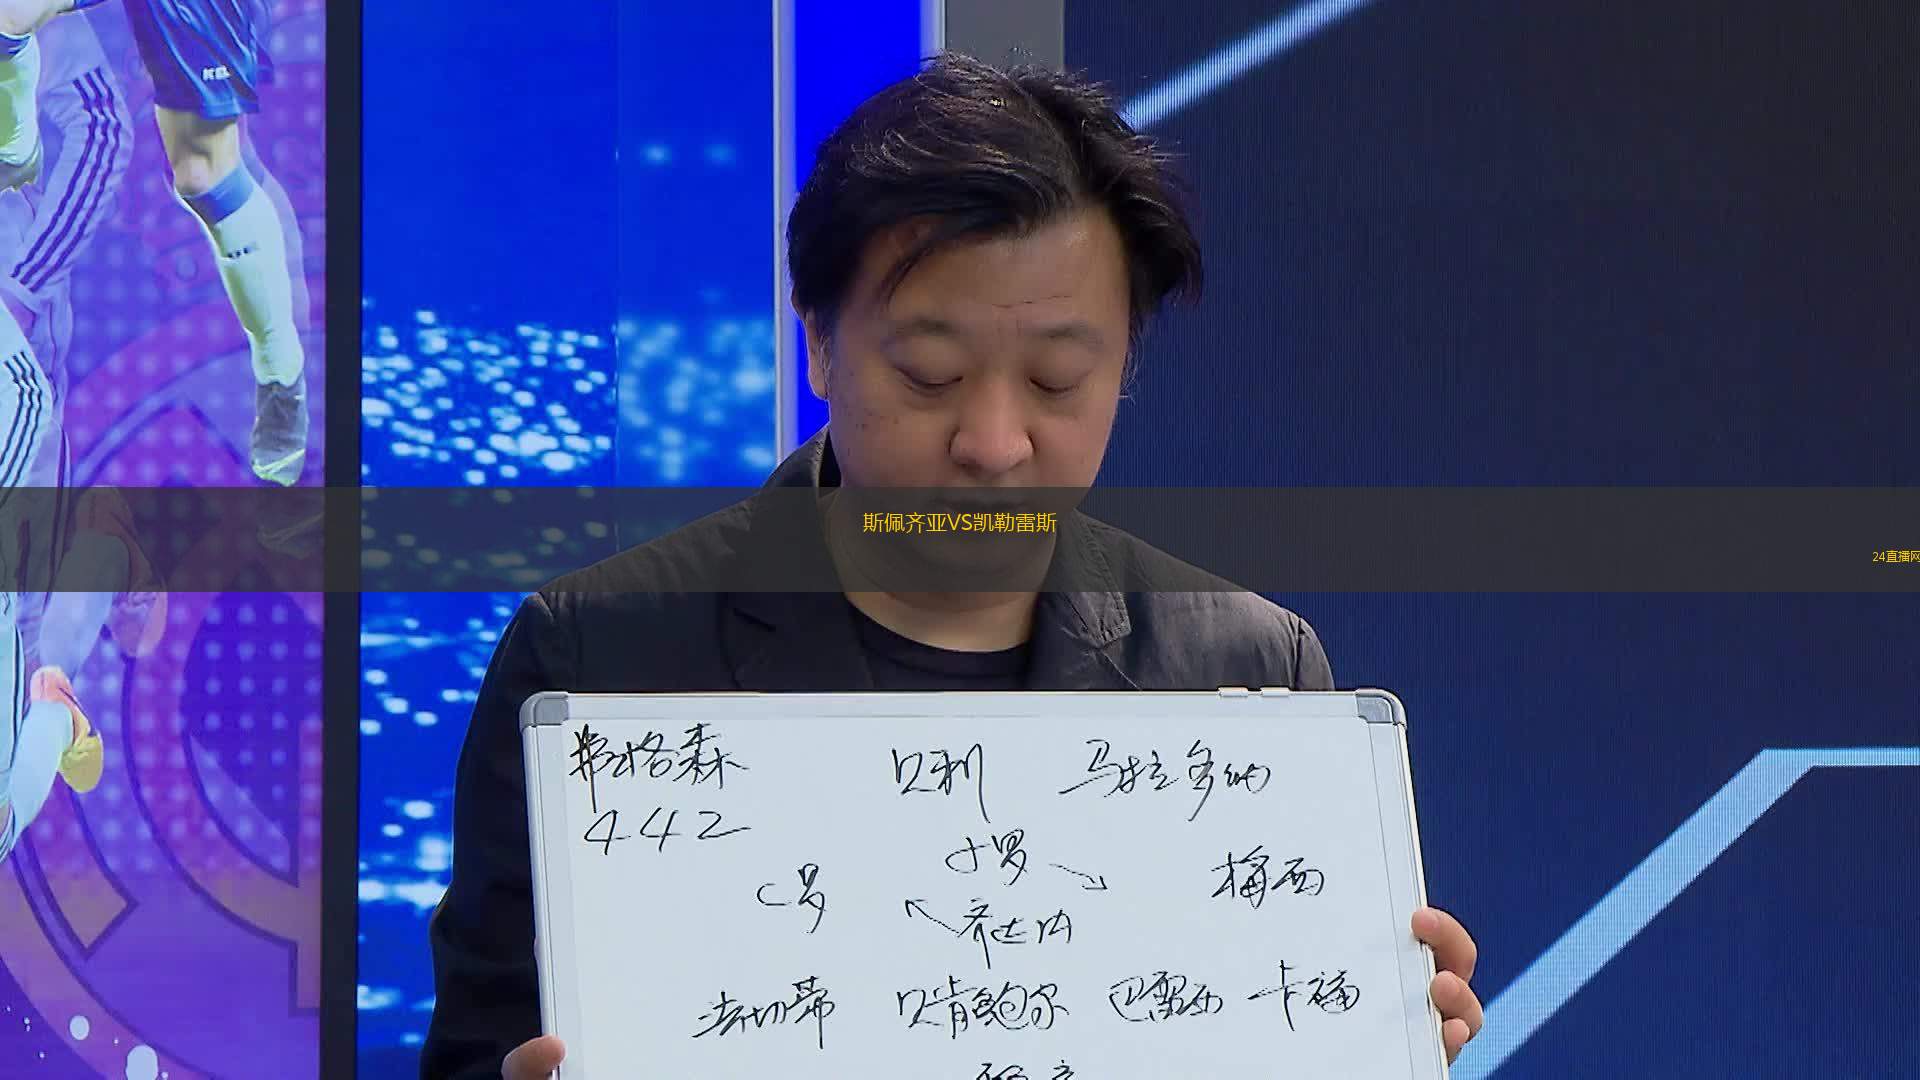 斯佩齐亚VS凯勒雷斯
24直播网
弗格森 贝利 马拉多纳
442
小罗
C罗 梅西
齐达内
法切蒂 贝肯鲍尔 巴雷西 卡福